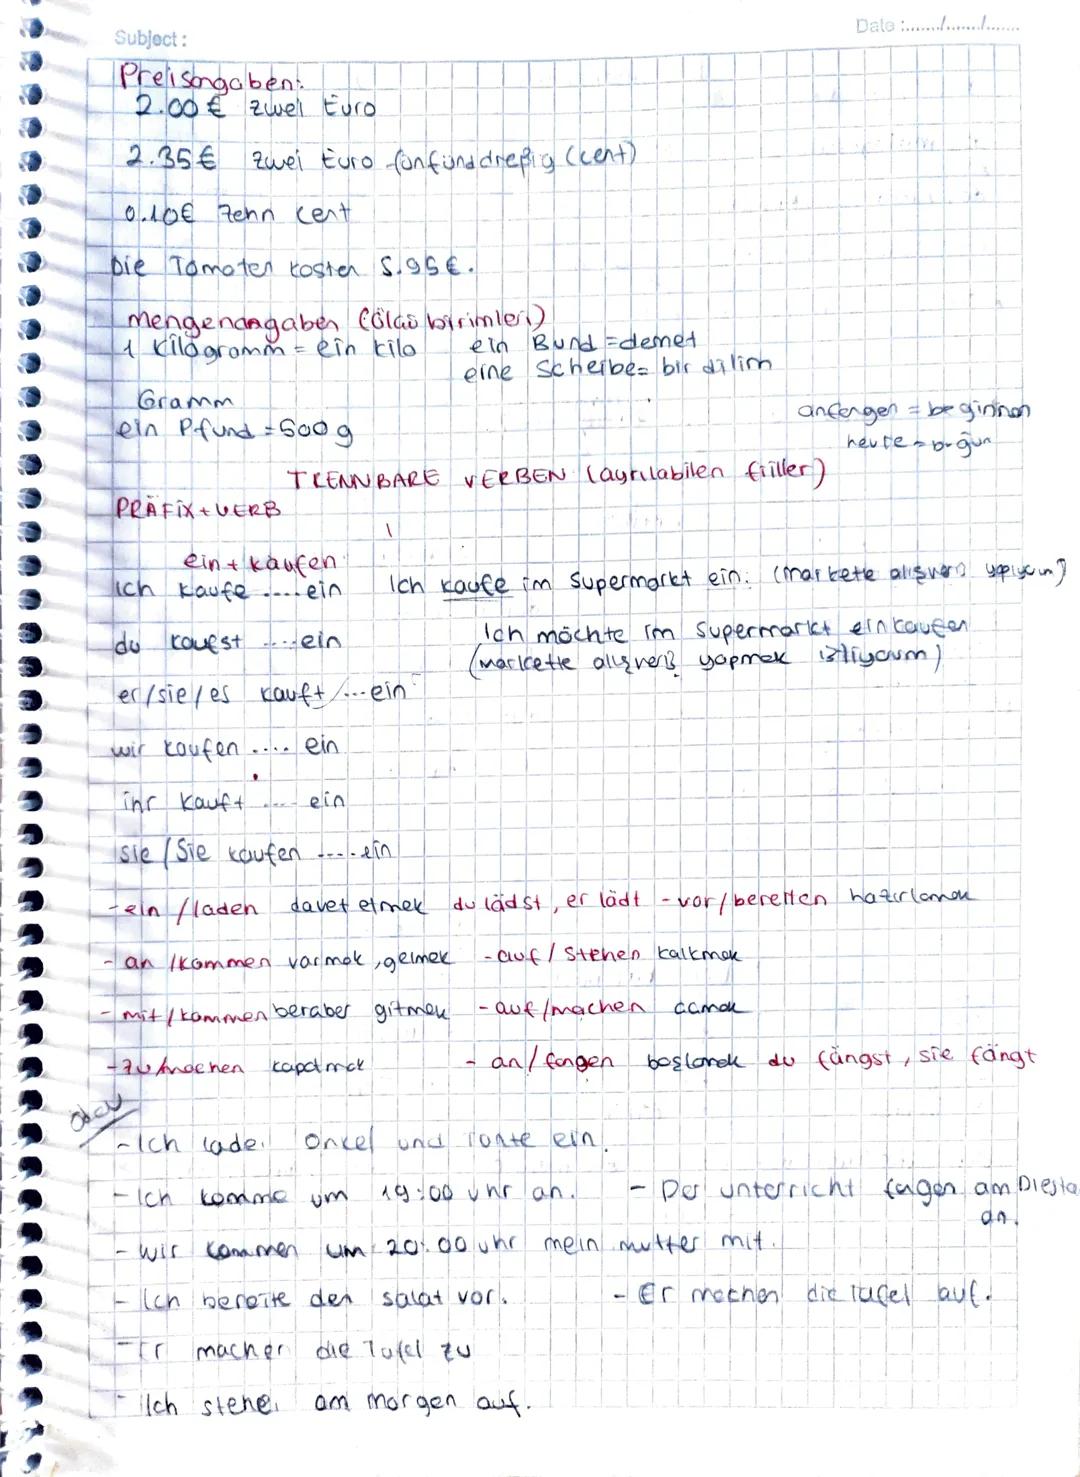 Subject:
Date :......./......./.......
Preisangaben:
2.00 € zwei Euro
2.35€ zwei Euro fünfunddreßig (cent)
0.10€ Zehn cent
Die Tomaten kosten 5.95€.
mengenangaben (ölçü birimleri)
1 Kilogramm = ein kilo
ein Bund = demet
eine Scheibe = bir dilim
Gramm
ein Pfund = 500 g
anfangen = beginnen
heute = bugün
TRENNBARE VERBEN (ayrılabilen fiiller)
PRÄFİX + VERB
ein + kaufen
ich kaufe .... ein
Ich kaufe im Supermarkt ein. (markete alışveriş yapıyorum)
du kaufst .... ein
Ich möchte im Supermarkt einkaufen
(markette alışveriş yapmak istiyorum)
er/sie/es kauft ... ein
wir kaufen .... ein
ihr kauft .... ein
sie / Sie kaufen ..... ein
- ein / laden davet etmek du lädst, er lädt - vor/bereiten hazırlamak
- an / kommen varmak, gelmek - auf / stehen kalkmak
- mit / kommen beraber gitmek - auf /machen açmak
- zu/machen kapatmak - an / fangen başlamak du fängst, sie fängt
- Ich lade Onkel und Tante ein.
- Ich komme um 19:00 uhr an. - Der unterricht fangen am Diesta
an.
- wir kommen um 20:00 uhr mein mutter mit.
- Ich bereite den salat vor. - Er machen die Tafel auf.
- Er machen die Tafel zu
- Ich stehe am morgen auf.